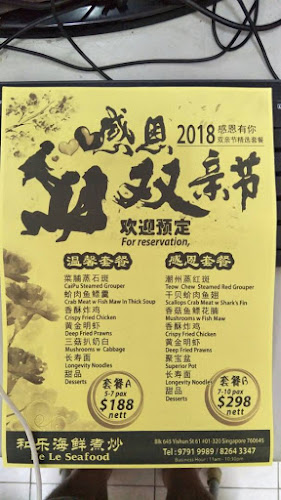 感恩
双亲节
2018 感恩有你
双亲节精选套餐
欢迎预定
For reservation,
温馨套餐
菜脯蒸石斑
CaiPu Steamed Grouper
蛤肉鱼鳔羹
Crab Meat w Fish Maw in Thick Soup
香酥炸鸡
Crispy Fried Chicken
黄金明虾
Deep Fried Prawns
三菇扒奶白
Mushrooms w Cabbage
长寿面
Longevity Noodles
甜品
Desserts
套餐A
5-7 pax
$188
nett
感恩套餐
潮州蒸红斑
Teow Chew Steamed Red Grouper
干贝蛤肉鱼翅
Scallops Crab Meat w Shark's Fin
香菇鱼鳔花腩
Mushrooms w Fish Maw
香酥炸鸡
Crispy Fried Chicken
黄金明虾
Deep Fried Prawns
聚宝盆
Superior Pot
长寿面
Longevity Noodles
甜品
Desserts
套餐B
7-10 pax
$298
nett
和乐海鲜煮炒
Le Seafood
Blk 645 Yishun St 61 #01-320 Singapore 760645
Tel : 9791 9989 / 8264 3347
Business Hour : 11am - 10:30pm